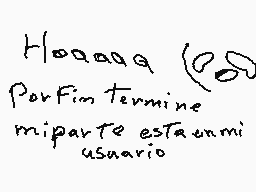 Hoaaaa
Porfin termine
miparte esta enmi
usuario